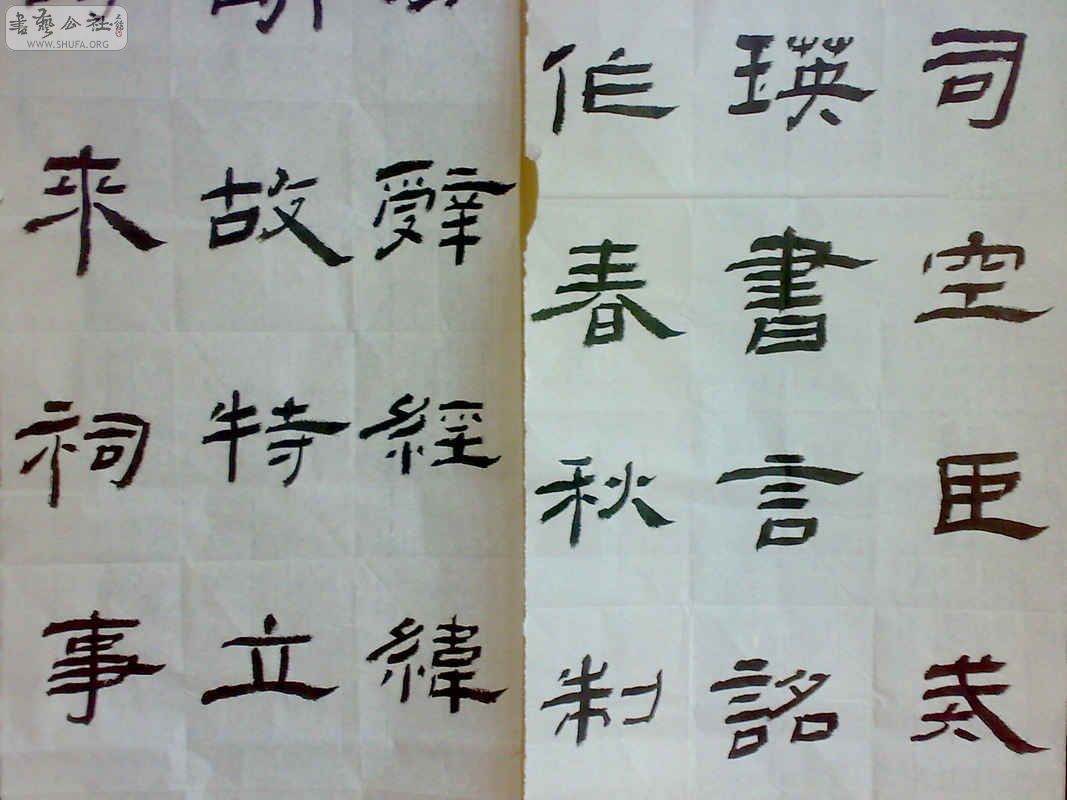 書藝公社
WWW.SHUFA.ORG
司空臣戒
瑛書言詔
作春秋制
辭經緯
故特立
來祠事